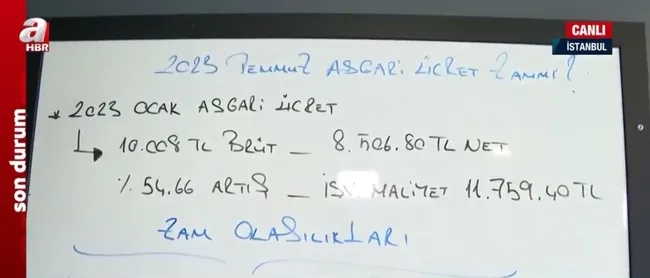 a
HBR
CANLI
İSTANBUL
son durum
2023 TEMMUZ ASGARİ ÜCRET ZAMMI?
* 2023 OCAK ASGARİ ÜCRET
↳ 10.008 TL BRÜT _ 8.506.80 TL NET
% 54.66 ARTIŞ _ İŞV. MALİYET 11.759.40 TL
ZAM OLASILIKLARI